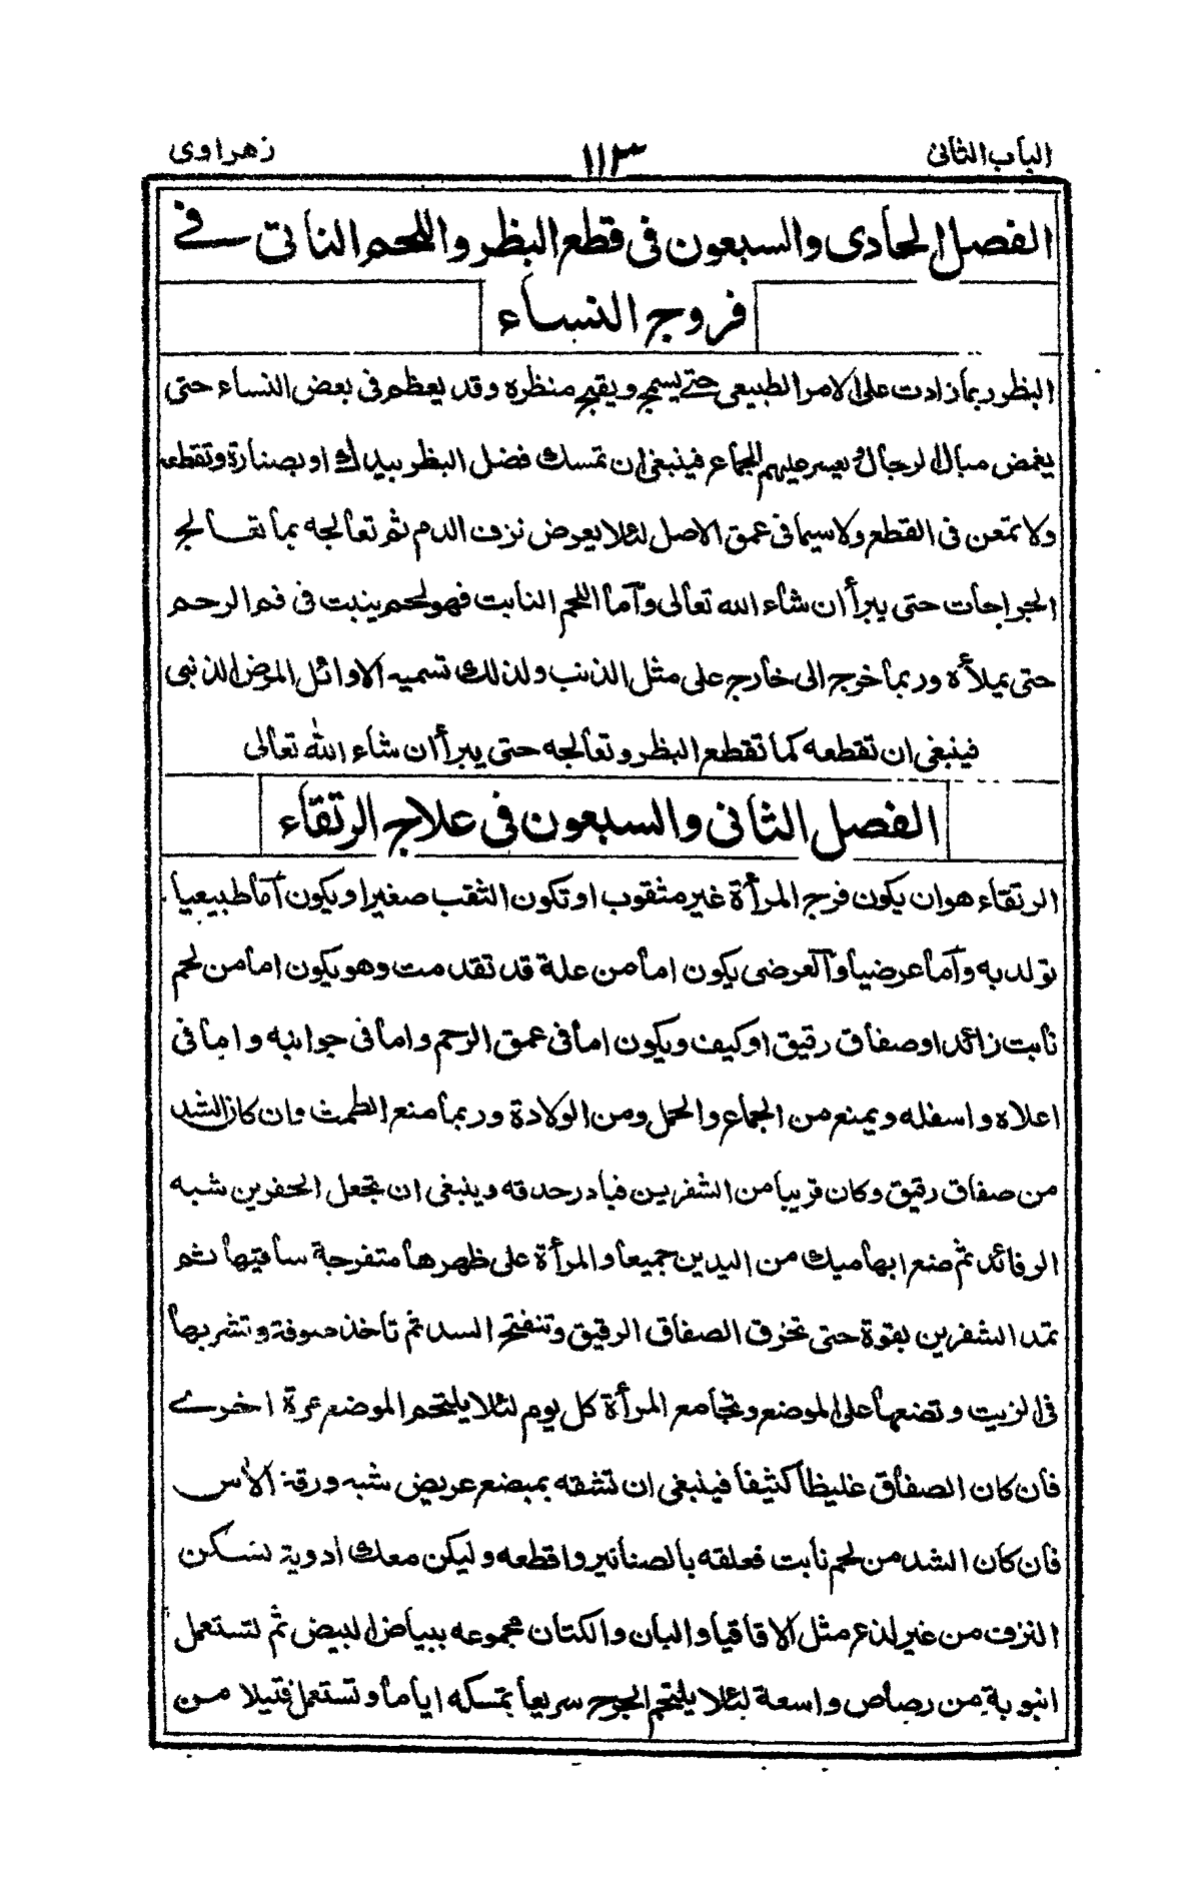 الباب الثانى ١١٣ زهراوى
الفصل الحادى والسبعون فى قطع البظر واللحم الناتى فے
فروج النساء
البظر ربما زادت على الامر الطبيعى حتے يسمج ويقبح منظره وقد يعظم فى بعض النساء حتى
يغمض مبال الرجال و يعسر عليهم الجماع فينبغى ان تمسك فضل البظر بيدك او بصنارة وتقطعه
ولا تمعن فى القطع ولا سيما فى عمق الاصل لئلا يعرض نزف الدم ثم تعالجه بما تعالج
الجراحات حتى يبرأ ان شاء الله تعالى وآما اللحم النابت فهو لحم ينبت فى فم الرحم
حتى يملأه وربما خرج الى خارج على مثل الذنب ولذلك تسميه الاوائل المرض الذنبى
فينبغى ان تقطعه كما تقطع البظر وتعالجه حتى يبرأ ان شاء الله تعالى
الفصل الثانى والسبعون فى علاج الرتقاء
الرتقاء هو ان يكون فرج المرأة غير مثقوب او تكون الثقب صغيرا ويكون آما طبيعيا
تولد به وآما عرضيا وآلعرضى يكون اما من علة قد تقدمت وهو يكون اما من لحم
نابت زائد او صفاق رقيق او كيف ويكون اما فى عمق الرحم واما فى جوانبه واما فى
اعلاه واسفله ويمنع من الجماع والحمل ومن الولادة وربما منع الطمث وان كان الشد
من صفاق رقيق وكان قريبا من الشفرين فبادر حدقه وينبغى ان تجعل الحفرين شبه
الرفائد ثم ضع ابهاميك من اليدين جميعا والمرأة على ظهرها متفرجة ساقيها ثم
تمد الشفرين بقوة حتى تخرق الصفاق الرقيق وتنفتح السد ثم تأخذ صوفة وتشربها
فى الزيت وتضعها على الموضع وتجامع المرأة كل يوم لئلا يلتحم الموضع مرة اخرے
فان كان الصفاق غليظا كثيفا فينبغى ان تشقه بمبضع عريض شبه ورقة الآس
فان كان الشد من لحم نابت فعلقه بالصنانير واقطعه وليكن معك ادوية تسكن
النزف من غير لذع مثل الاقاقيا والبان والكتان مجموعه ببياض البيض ثم تستعمل
انبوبة من رصاص واسعة لئلا يلتحم الجرح سريعا تمسكه اياما وتستعمل فتيلا من